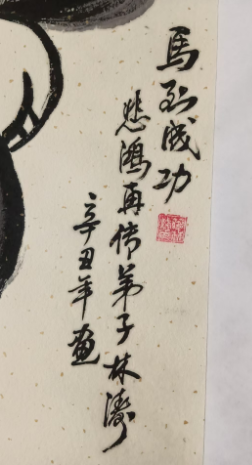 馬到成功
悲鴻再传弟子林濤
辛丑年画